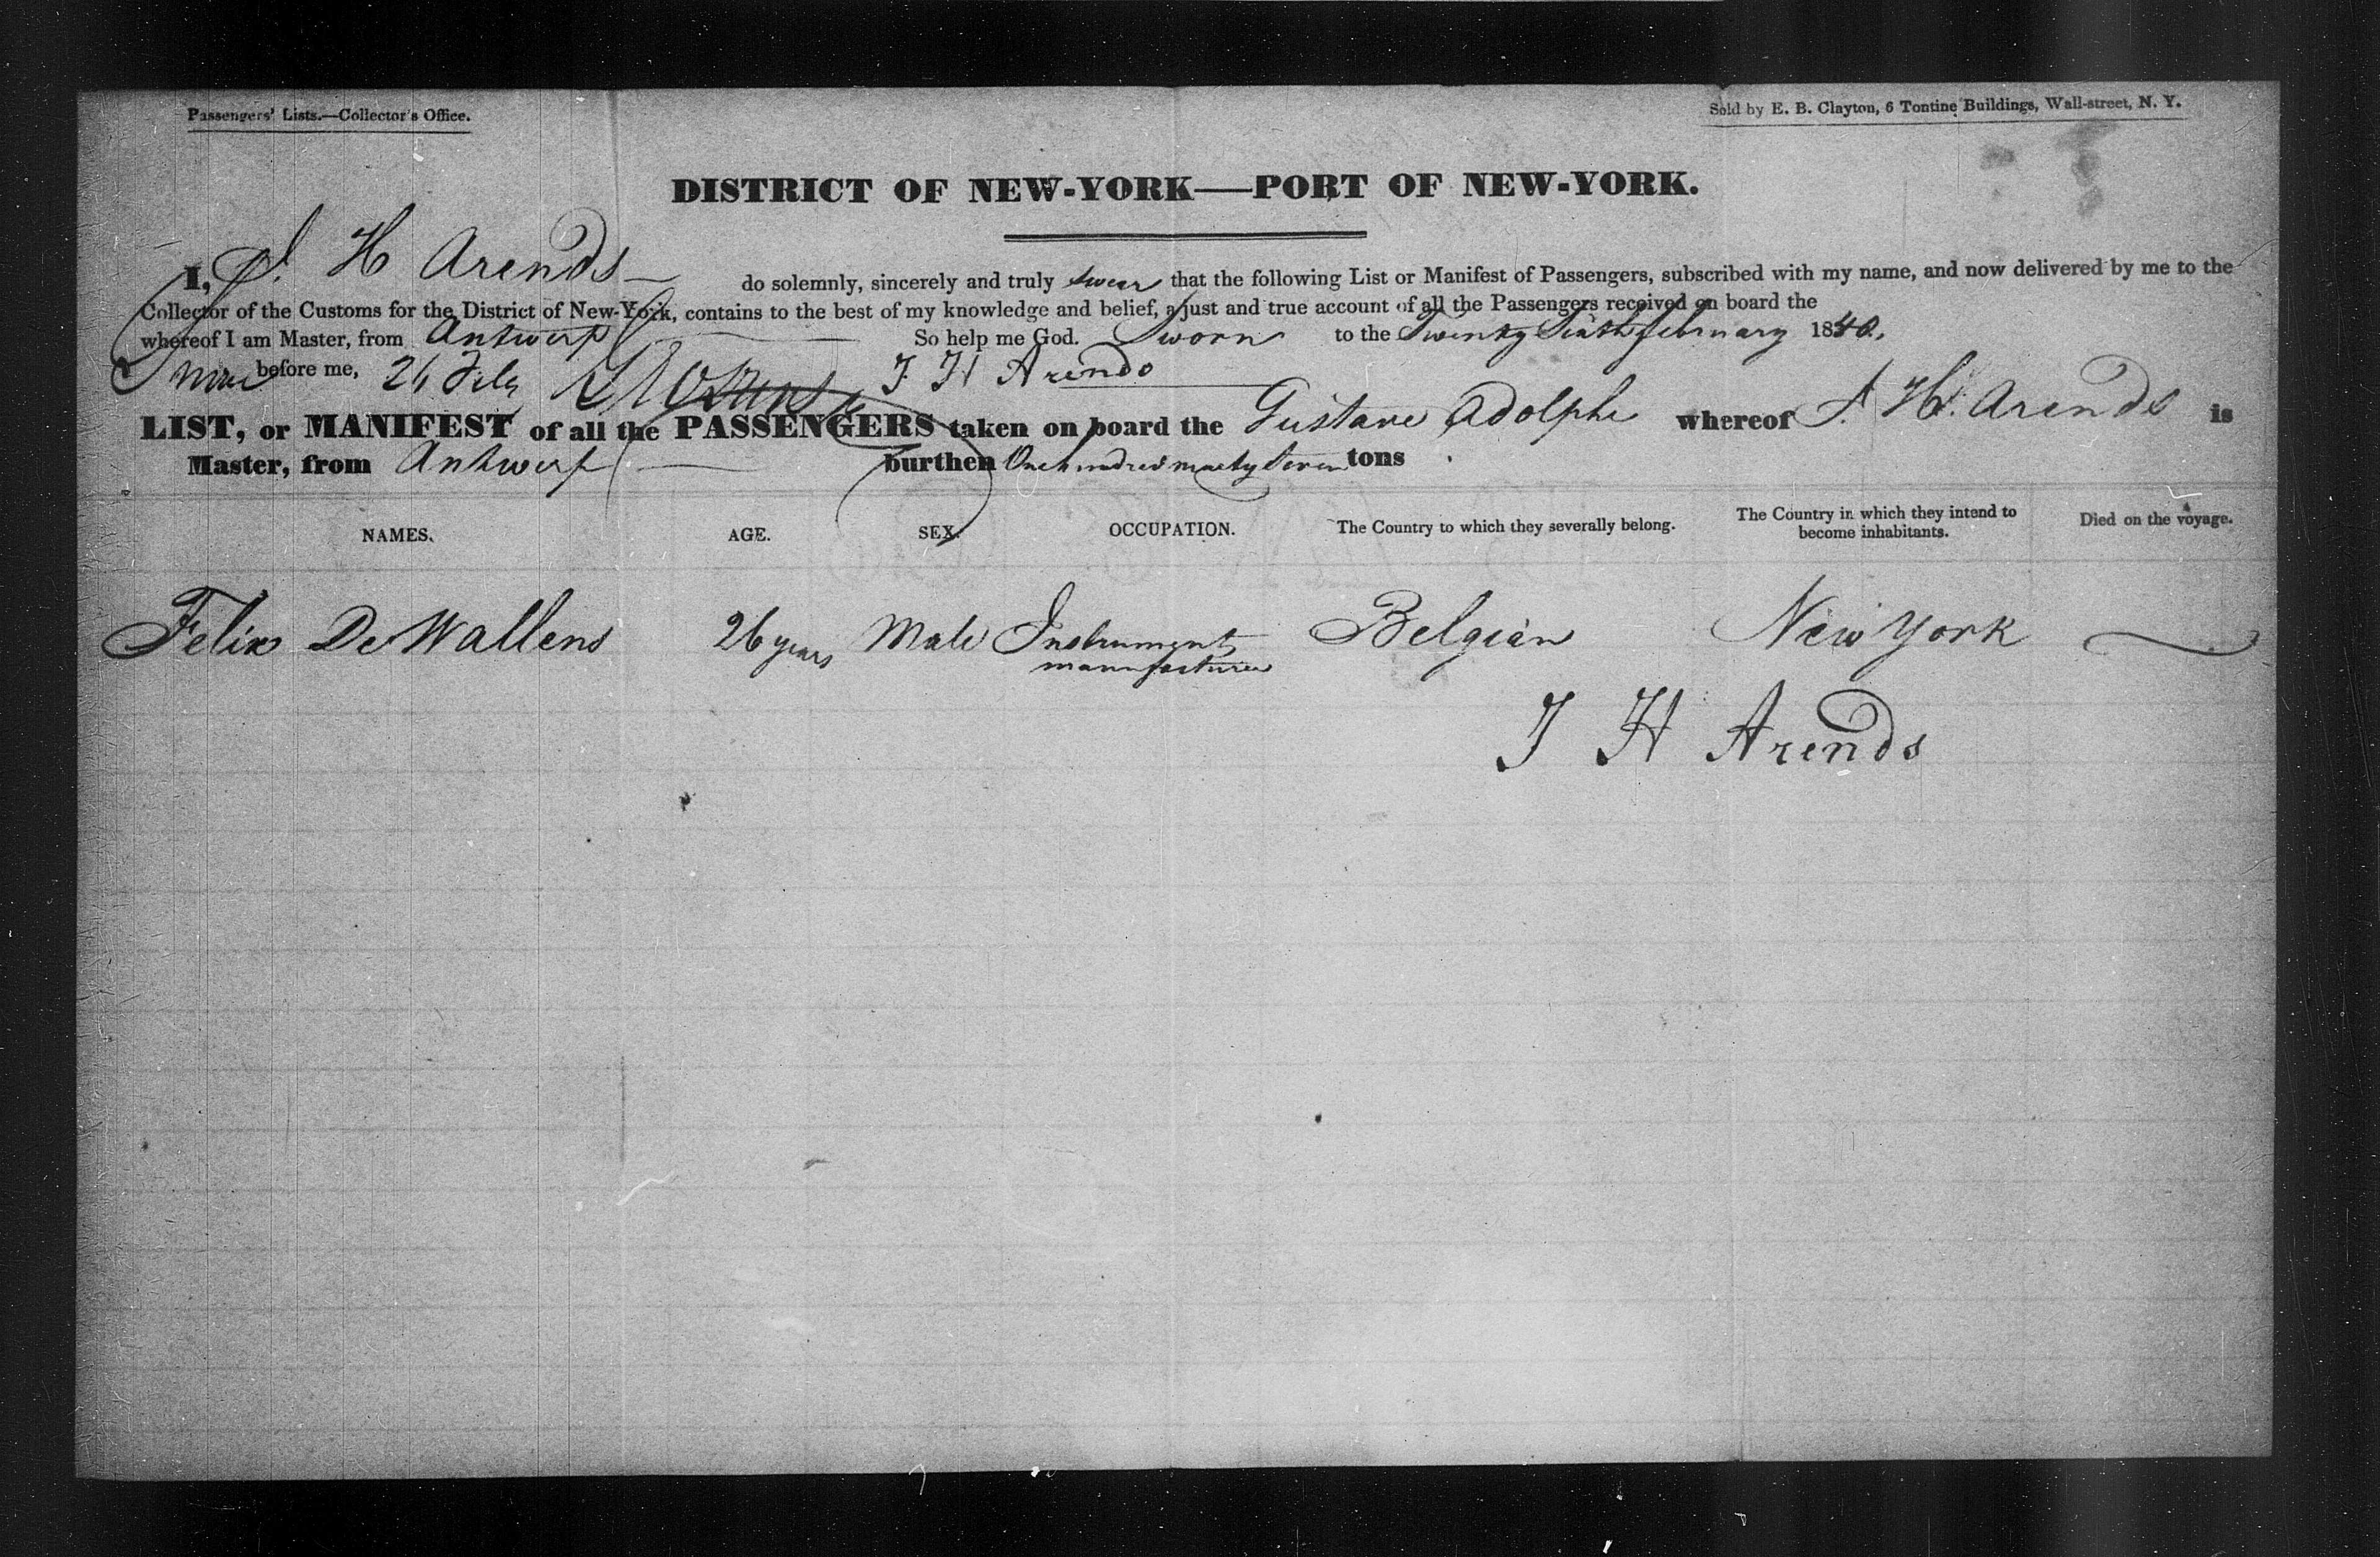 Passengers' Lists.—Collector's Office.
Sold by E. B. Clayton, 6 Tontine Buildings, Wall-street, N. Y.
DISTRICT OF NEW-YORK—PORT OF NEW-YORK.
I, J. H Arends do solemnly, sincerely and truly swear that the following List or Manifest of Passengers, subscribed with my name, and now delivered by me to the
Collector of the Customs for the District of New-York, contains to the best of my knowledge and belief, a just and true account of all the Passengers received on board the
whereof I am Master, from Antwerp So help me God. Sworn to the Twenty Sixth february 1840.
before me, 26 Feby J H Arends
LIST, or MANIFEST of all the PASSENGERS taken on board the Gustave Adolphe whereof J. H. Arends is
Master, from Antwerp burthen One hundred ninety Seven tons
NAMES. AGE. SEX. OCCUPATION. The Country to which they severally belong. The Country in which they intend to become inhabitants. Died on the voyage.
Felix De Wallens 26 years Male Instrument Belgian New York
manufacturer
J H Arends